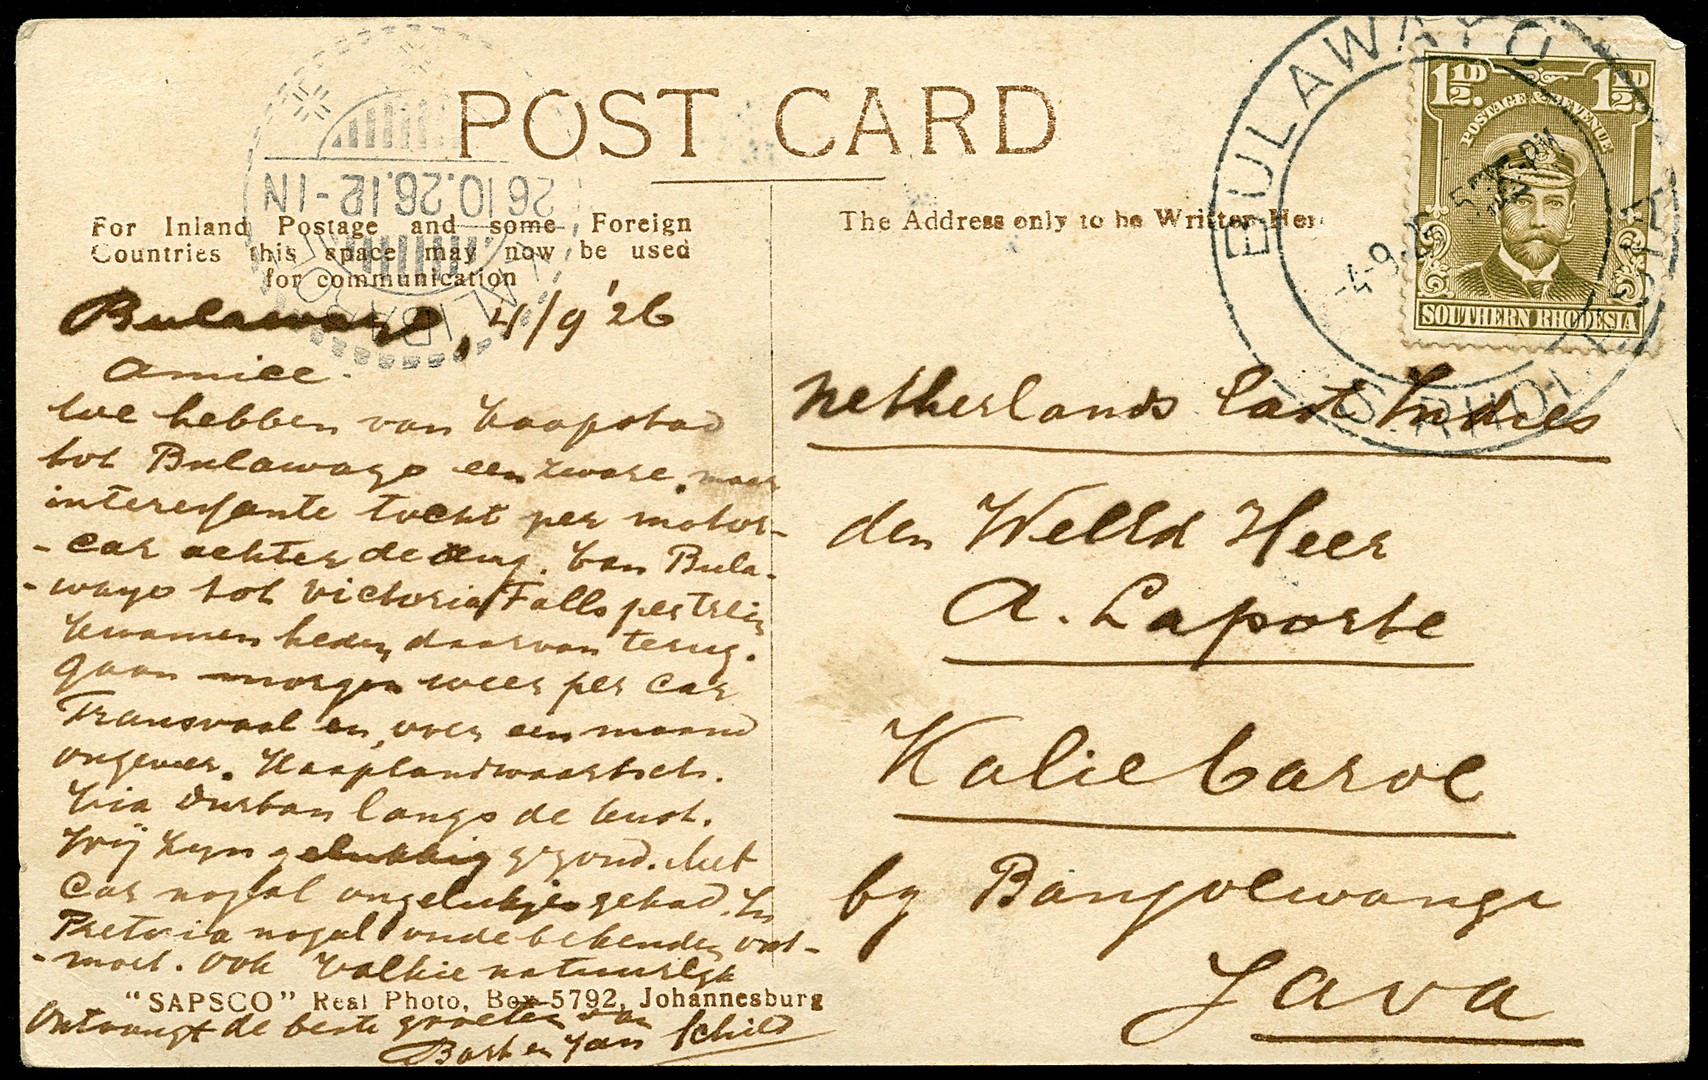 POST CARD
For Inland Postage and some Foreign
Countries this space may now be used
for communication
The Address only to be Written Here
BULAWAYO
S. RHODESIA
4-9-26
1½D. 1½D.
POSTAGE & REVENUE
SOUTHERN RHODESIA
26.10.26.12-1N
Bulawayo, 4/9 '26
Amice.
We hebben van Kaapstad
tot Bulawayo een zware, maar
interessante tocht per motor-
-car achter de rug. Van Bula-
-wayo tot Victoria Falls per trein
Kwamen heden daarvan terug.
gaan morgen weer per car
Transvaal en, over een maand
ongeveer. Kaaplandwaartsch.
Via Durban langs de kust.
Wij zyn gelukkig gezond. Met
Car nogal ongelukjes gehad. In
Pretoria nogal oude bekenden ont-
-moet. Ook natuurlyk
"SAPSCO" Real Photo, Box 5792, Johannesburg
Ontvangt de beste groeten van
en Jan Schild
Netherlands East Indies
den WelEd Heer
A. Laporte
Kalie Baroe
by Banjoewangi
Java